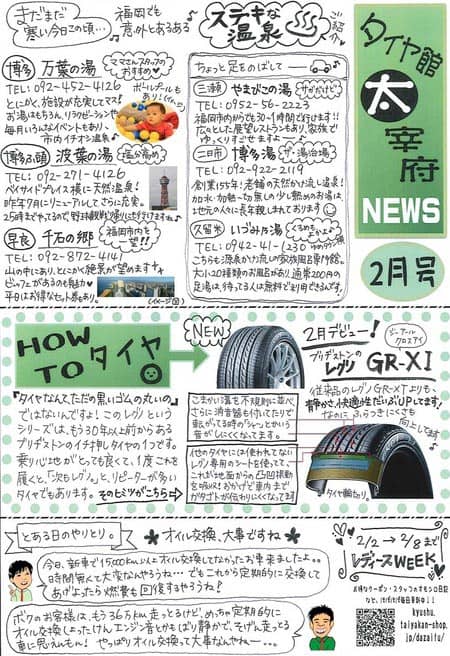 まだまだ
寒い今日この頃…
福岡でも
意外とあるある
ステキな
温泉
ご紹介
博多 万葉の湯
ママさんスタッフの
おすすめ♥
TEL: 092-452-4126
とにかく、施設が充実してマス!
お湯はもちろん、リラクゼーションや
毎月いろんなイベントもあり、
市内イチオシ温泉
ボールプールも
あり!
博多ふ頭 波葉の湯
塩分高め
TEL: 092-271-4126
ベイサイドプレイス横に天然温泉!
昨年9月にリニューアルしてさらに充実。
25時までやってるので、野球観戦帰りにも行けますね
早良 千石の郷
福岡市内を
一望!!
TEL: 092-872-4141
山の中にあり、とにかく絶景が望めます
ビュッフェがあるのも魅力
平日はお得なセット券もあり。
(イメージ図)
ちょっと足をのばして
三瀬 やまびこの湯
TEL: 0952-56-2223
福岡市内からでも30〜1時間で行けます!!
広々とした展望レストランもあり、家族で
ゆっくりすごせますよ〜♪
二日市 博多湯
ザ・湯治場
TEL: 092-922-2119
創業155年!老舗の天然かけ流し温泉!
加水・加熱一切無しの少し熱めのお湯は、
地元の人々に長年親しまれております
久留米 いづみ乃湯
TEL: 0942-41-1230
こちらも源泉かけ流しの家族風呂専門館。
大小20種類のお風呂があり、通常200円の
足湯は、待ってる人は無料でご利用できるんです。
タイヤ館
太
宰
府
NEWS
2月号
HOW
TOタイヤ
NEW
2月デビュー!
ブリヂストンの
レグノ GR-XI
ジーアール
クロスアイ
従来品のレグノGR-XTよりも、
静かさ、快適性がUPしてます!
なのに ふらつきにくさも
向上してます
『タイヤなんて、ただの黒いゴムの丸いの』
ではないんですよ! このレグノという
シリーズは、もう30年以上前からある
ブリヂストンのイチ押しタイヤの1つです。
乗り心地がとっても良くて、1度これを
履くと、「次もレグノ」と、リピーターが多い
タイヤでもあります。 そのヒミツがこちら
こまかい溝を不規則に並べ、
さらに消音器も付いてたりで
転がってる時の「シャーッ」とかいう
音がしにくくなってます。
他のタイヤには使われてない
レグノ専用のシートを使ってて、
これが地面からの凸凹振動
を吸収!おかげで車内まで
ガタゴトが伝わりにくくなってます
タイヤ輪切り。
とある日のやりとり。
★オイル交換、大事ですね★
今日、新車で15,000km以上オイル交換してなかったお車来ましたよ。。
時間無くて大変なんやろうね… でもこれから定期的に交換して
あげよったら燃費も回復するやろうね!
ボクのお客様は、もう36万km走っとるけど、めっちゃ定期的に
オイル交換しよったけん、エンジン音とかもばり静かで、そげん走っとる
車に思えんもん! やっぱりオイル交換って大事なんやねー…
2/2〜2/8まで
レディースWEEK
お得なクーポン・スタッフのオモシロ日記
kyushu.
taiyakan-shop.
jp/dazaifu/